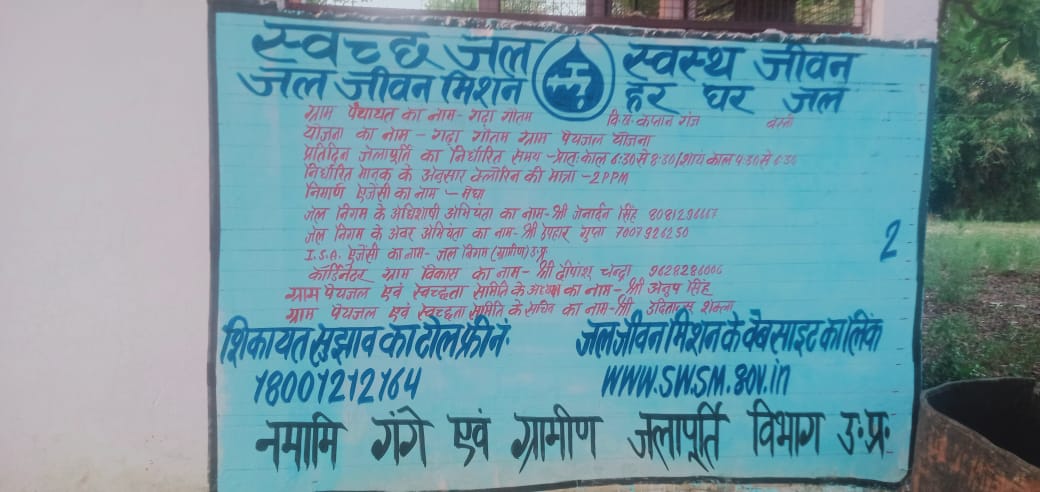 स्वच्छ जल स्वस्थ जीवन
जल जीवन मिशन हर घर जल
ग्राम पंचायत का नाम- गढ़ा गौतम वि.ख. कप्तान गंज बस्ती
योजना का नाम - गढ़ा गौतम ग्राम पेयजल योजना
प्रतिदिन जलापूर्ति का निर्धारित समय -प्रात: काल 6:30 से 8:30/शायं काल 4:30 से 6:30
निर्धारित मानक के अनुसार क्लोरिन की मात्रा -2PPM
निमार्ण ऐजेंसी का नाम - मेघा
जल निगम के अधिशाषी अभियंता का नाम- श्री जनार्दन सिंह
जल निगम के अवर अभियंता का नाम- श्री उपहार गुप्ता 7007926250
I.S.A. ऐजेंसी का नाम- जल निगम (ग्रामीण) उ.प्र.
कॉर्डिनेटर ग्राम विकास का नाम- श्री दीपांश चन्द्रा
ग्राम पेयजल एवं स्वच्छता समिति के अध्यक्ष का नाम- श्री अनुप सिंह
ग्राम पेयजल एवं स्वच्छता समिति के सचिव का नाम- श्री शुक्ला
2
शिकायत सुझाव का टोल फ्री नं. जल जीवन मिशन के वेब साइट का लिंक
18001212164 WWW.SWSM.GOV.in
नमामि गंगे एवं ग्रामीण जलापूर्ति विभाग उ.प्र.